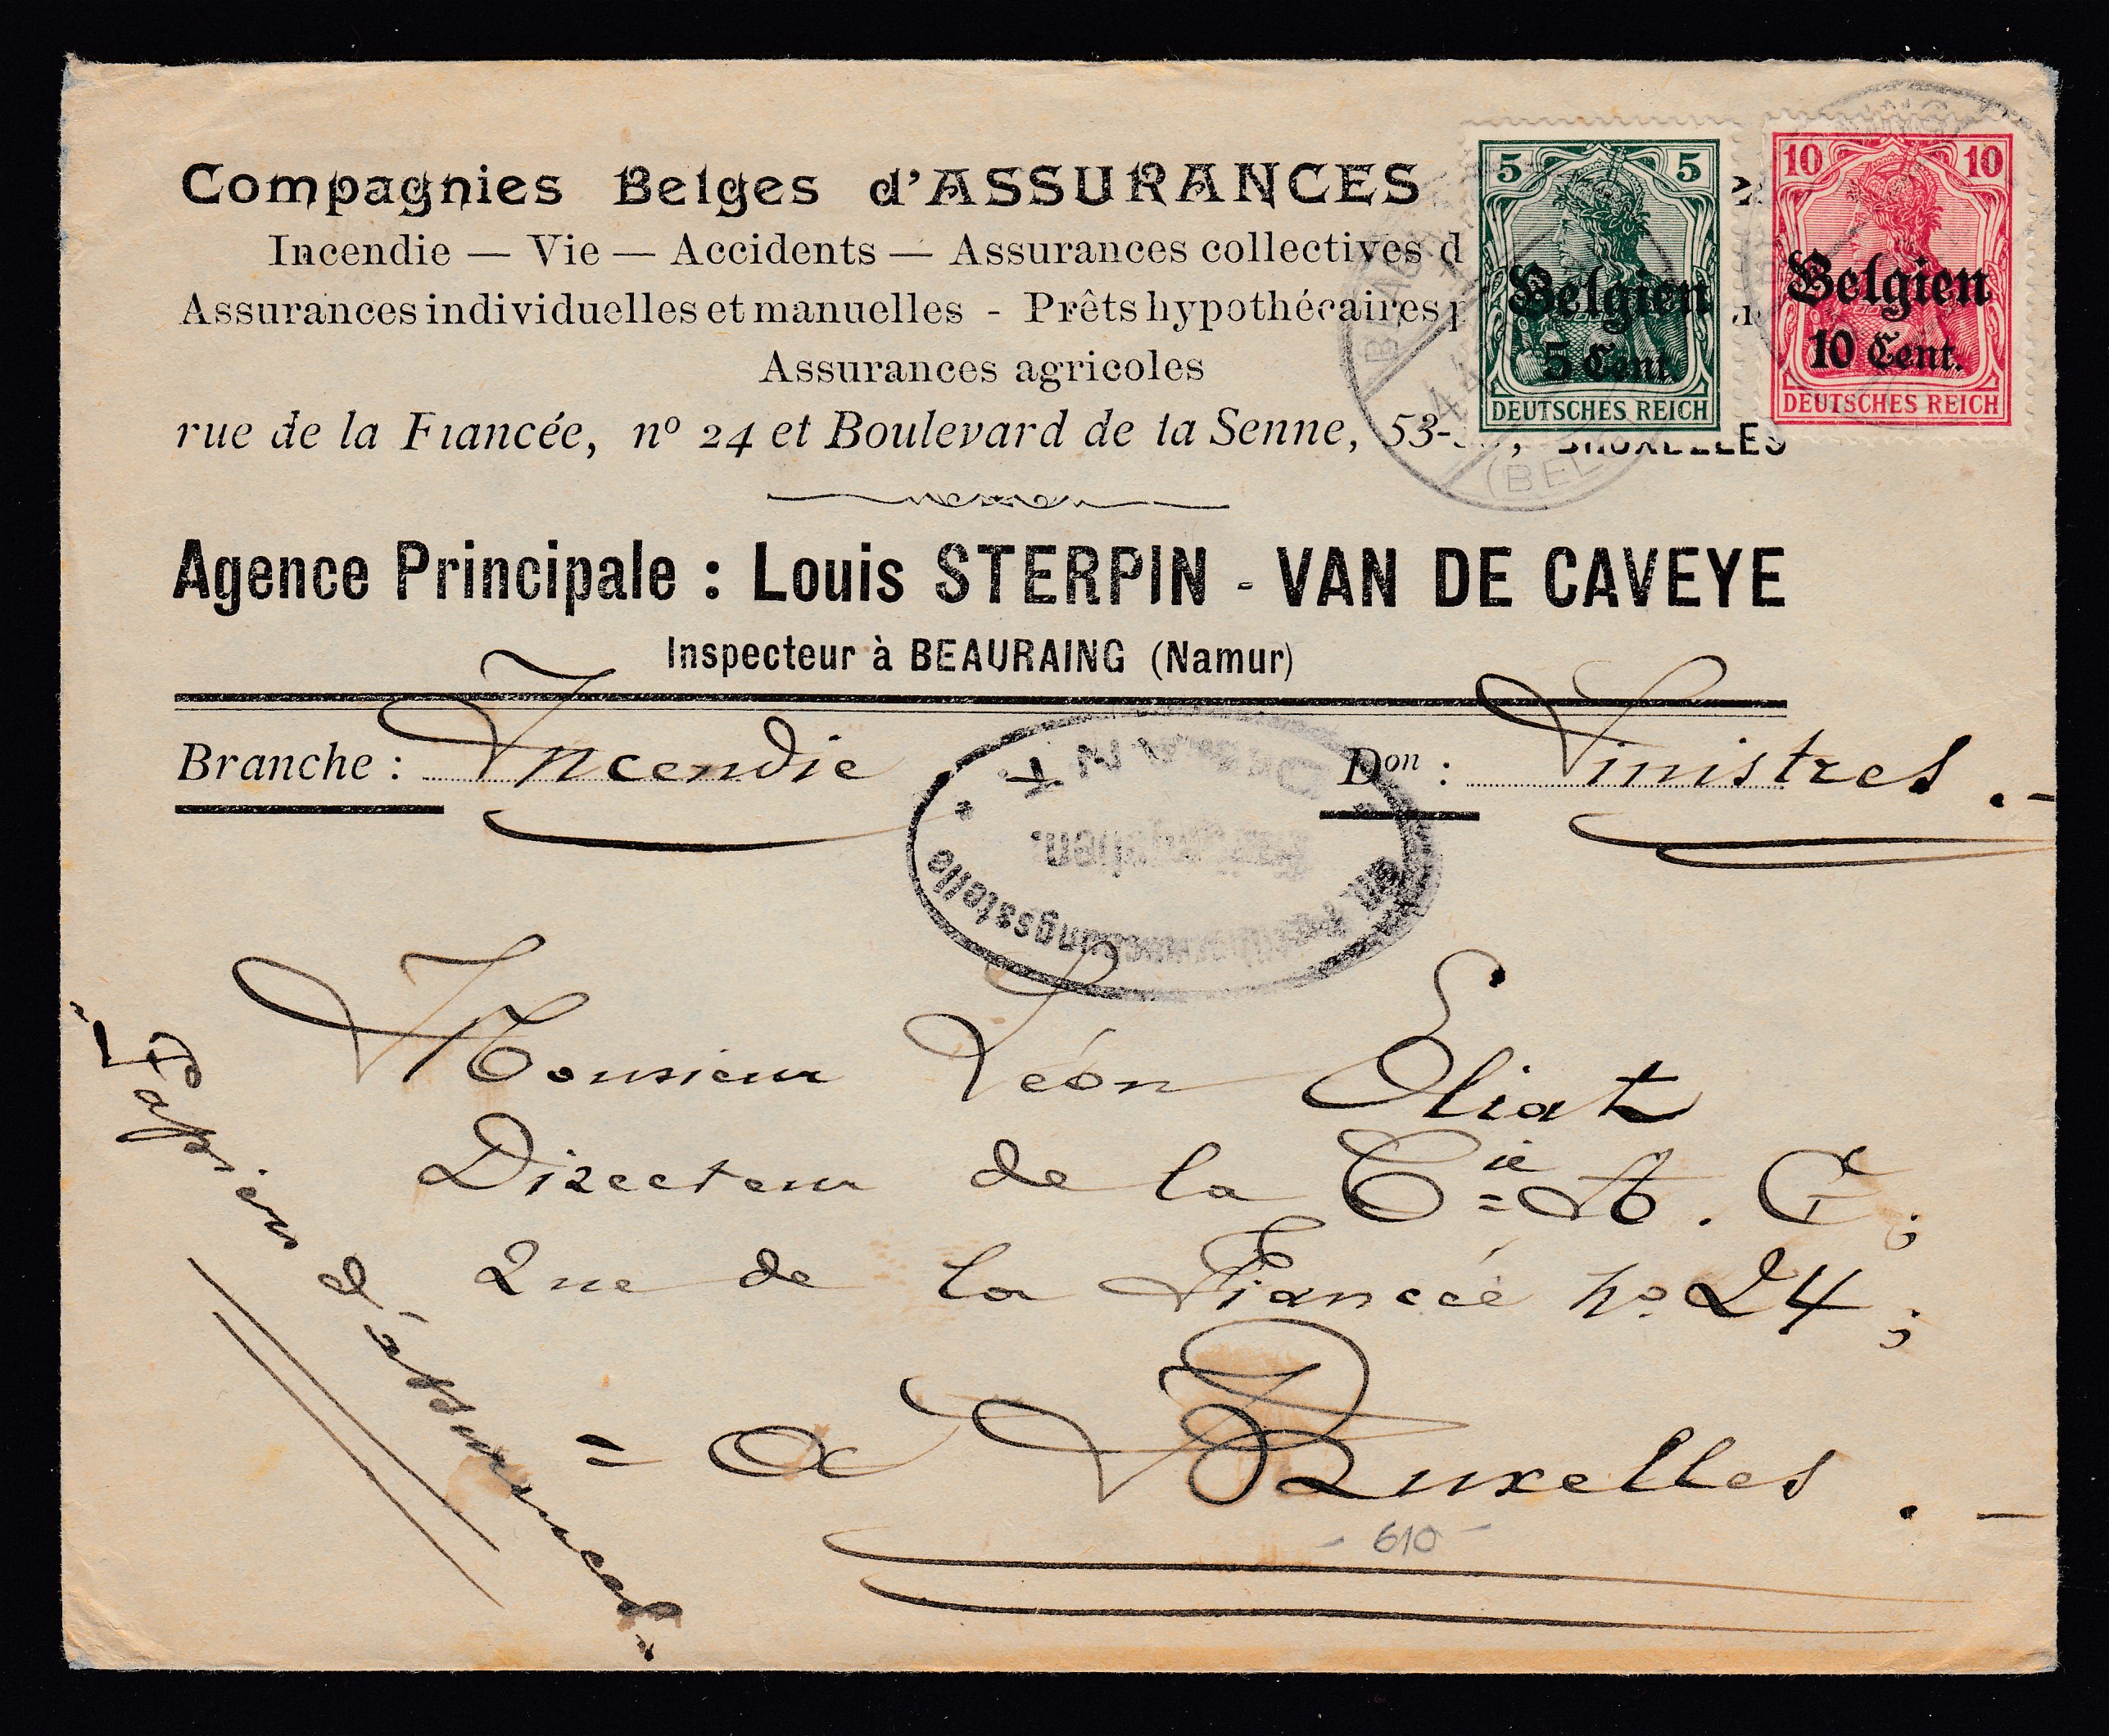 Compagnies Belges d'ASSURANCES
Incendie — Vie — Accidents — Assurances collectives d
Assurances individuelles et manuelles - Prêts hypothécaires p
Assurances agricoles
rue de la Fiancée, nº 24 et Boulevard de la Senne, 53- , BRUXELLES
5 5
Belgien
5 Cent.
DEUTSCHES REICH
10 10
Belgien
10 Cent.
DEUTSCHES REICH
(BEL
Agence Principale : Louis STERPIN - VAN DE CAVEYE
Inspecteur à BEAURAING (Namur)
Branche : Incendie
Don : Sinistres.-
Monsieur Léon Eliat
Directeur de la Cie A. G.;
Rue de la Fiancée no 24;
= à Bruxelles.-
- 610 -
"Papiers d'assurances"